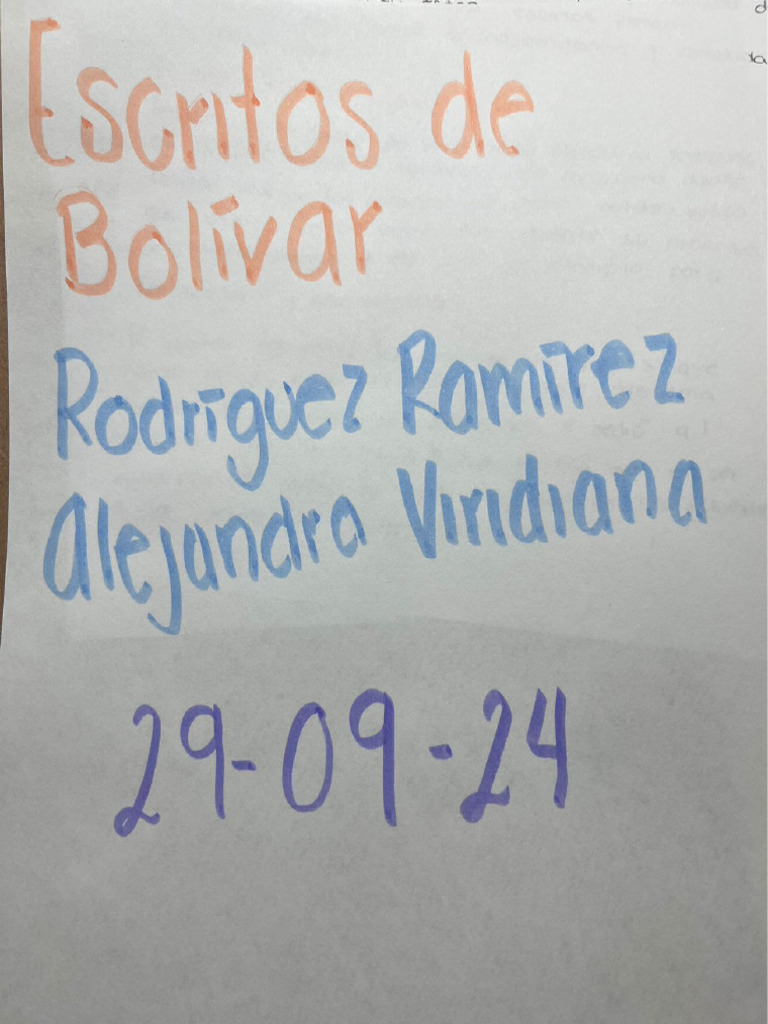 Escritos de
Bolívar
Rodríguez Ramírez
Alejandra Viridiana
29-09-24